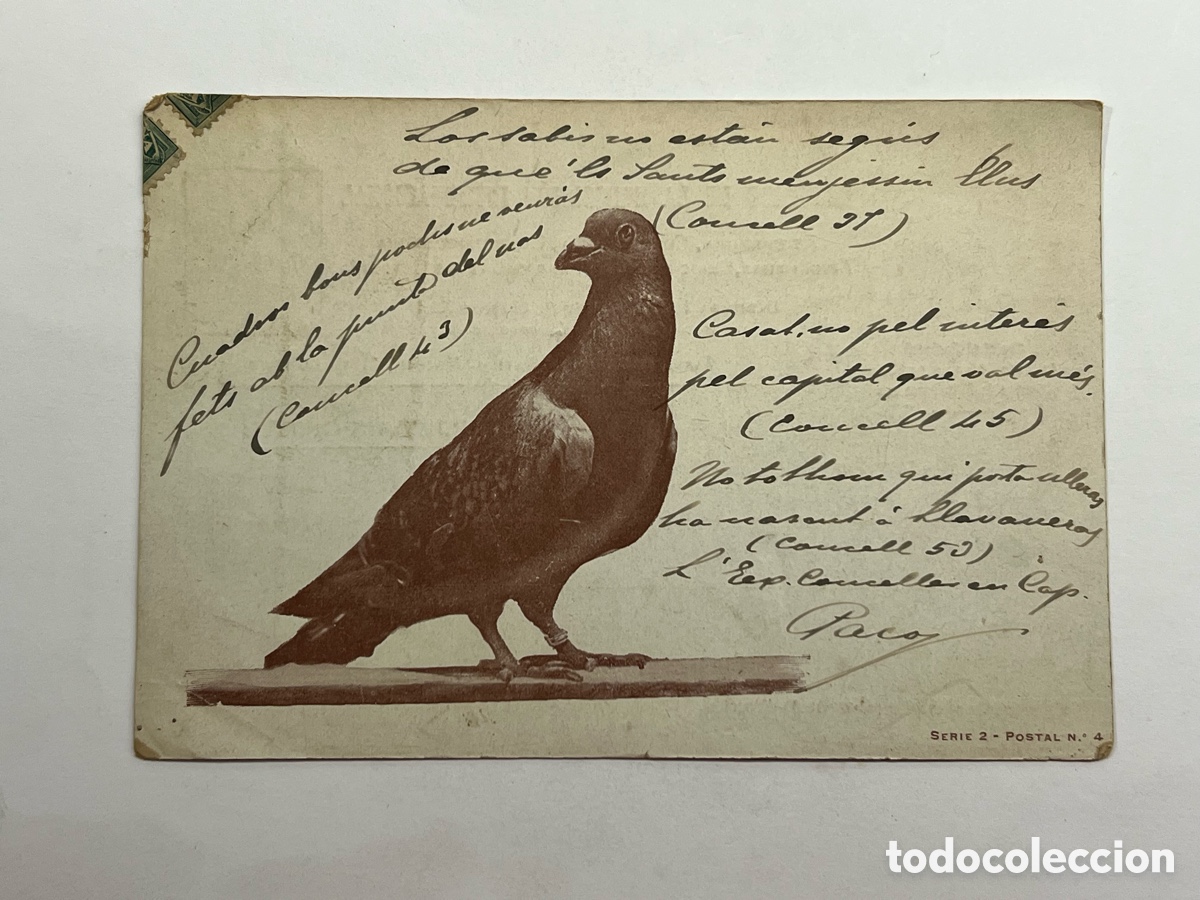 Los sabis no están segús
de que'ls Sants menjessin llus
(Concell 37)
Cuadros bons podis ne veurás
fets ab la punta del nas
(Concell 43)
Casat, no pel interés
pel capital que val més.
(Concell 45)
No tothom qui porta ulleras
ha nascut á Llavaneras
(Concell 53)
L'Exp. Conceller en Cap.
Paco
SERIE 2 - POSTAL N.° 4
todocoleccion